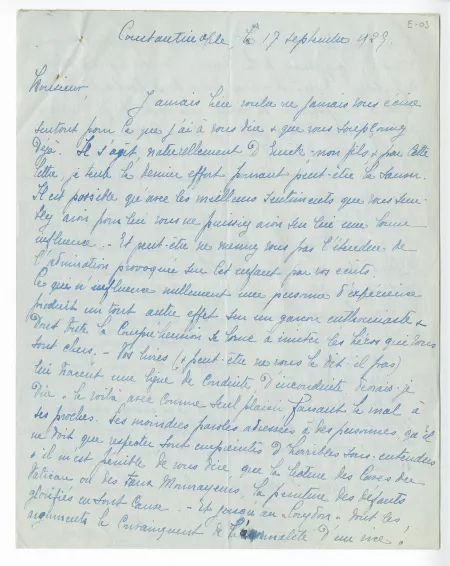 E-03
Constantinople, le 17 septembre 1929
Monsieur,
J'aurais bien voulu ne jamais vous écrire
surtout pour ce que j'ai à vous dire & que vous soupçonnez
déjà. Il s'agit naturellement d' mon fils & par cette
lettre, je tente le dernier effort pouvant peut-être le sauver.
Il est possible qu'avec les meilleurs sentiments que vous sem-
blez avoir pour lui vous ne puissiez avoir sur lui une bonne
influence. - Et peut-être ne mesurez vous pas l'étendue de
l'admiration provoquée sur cet enfant par vos écrits.
Ce qui n'influence nullement une personne d'expérience
produit un tout autre effet sur un garçon enthousiaste &
dont toute la compréhension se borne à imiter les héros que vous
sont chers. - Vos livres (& peut-être ne vous le dit-il pas)
lui tracent une ligne de conduite, d'inconduite devrais-je
dire & le voilà avec comme seul plaisir faisant le mal à
ses proches. Ses moindres paroles adressées à des personnes qu'il
ne doit que respecter sont empreintes d'horribles sous-entendus
& il m'est pénible de vous dire que la lecture des Caves du
Vatican ou des Faux Monnayeurs, la peinture des défauts
glorifiés en sont cause. - Et jusqu'au Corydon, dont les
arguments le convainquent de d'un vice!